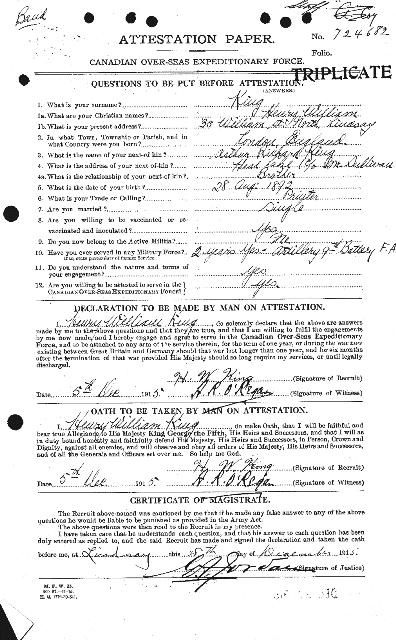 Band
ATTESTATION PAPER.
No. 724682
Folio.
CANADIAN OVER-SEAS EXPEDITIONARY FORCE.
TRIPLICATE
QUESTIONS TO BE PUT BEFORE ATTESTATION.
(ANSWERS)
1. What is your surname? King
1a. What are your Christian names? Henry William
1b. What is your present address? 30 William St North Lindsay
2. In what Town, Township or Parish, and in
what Country were you born? London, England
3. What is the name of your next-of-kin? Arthur Richard King
4. What is the address of your next-of-kin?
4a. What is the relationship of your next-of-kin? Brother
5. What is the date of your birth? 28 Aug 1892
6. What is your Trade or Calling?
7. Are you married? Single
8. Are you willing to be vaccinated or re-
vaccinated and inoculated? Yes
9. Do you now belong to the Active Militia? No
10. Have you ever served in any Military Force? 2 years Artillery 9th Battery F.A
If so, state particulars of former Service.
11. Do you understand the nature and terms of
your engagement? Yes
12. Are you willing to be attested to serve in the
CANADIAN OVER-SEAS EXPEDITIONARY FORCE? Yes
DECLARATION TO BE MADE BY MAN ON ATTESTATION.
I, Henry William King, do solemnly declare that the above are answers
made by me to the above questions and that they are true, and that I am willing to fulfil the engagements
by me now made, and I hereby engage and agree to serve in the Canadian Over-Seas Expeditionary
Force, and to be attached to any arm of the service therein, for the term of one year, or during the war now
existing between Great Britain and Germany should that war last longer than one year, and for six months
after the termination of that war provided His Majesty should so long require my services, or until legally
discharged.
H W King (Signature of Recruit)
Date 5th Dec 1915 (Signature of Witness)
OATH TO BE TAKEN BY MAN ON ATTESTATION.
I, Henry William King, do make Oath, that I will be faithful and
bear true Allegiance to His Majesty King George the Fifth, His Heirs and Successors, and that I will as
in duty bound honestly and faithfully defend His Majesty, His Heirs and Successors, in Person, Crown and
Dignity, against all enemies, and will observe and obey all orders of His Majesty, His Heirs and Successors,
and of all the Generals and Officers set over me. So help me God.
H W King (Signature of Recruit)
Date 5th Dec 1915 (Signature of Witness)
CERTIFICATE OF MAGISTRATE.
The Recruit above-named was cautioned by me that if he made any false answer to any of the above
questions he would be liable to be punished as provided in the Army Act.
The above questions were then read to the Recruit in my presence.
I have taken care that he understands each question, and that his answer to each question has been
duly entered as replied to, and the said Recruit has made and signed the declaration and taken the oath
before me, at Lindsay this day of December 1915.
(Signature of Justice)
M. F. W. 23.